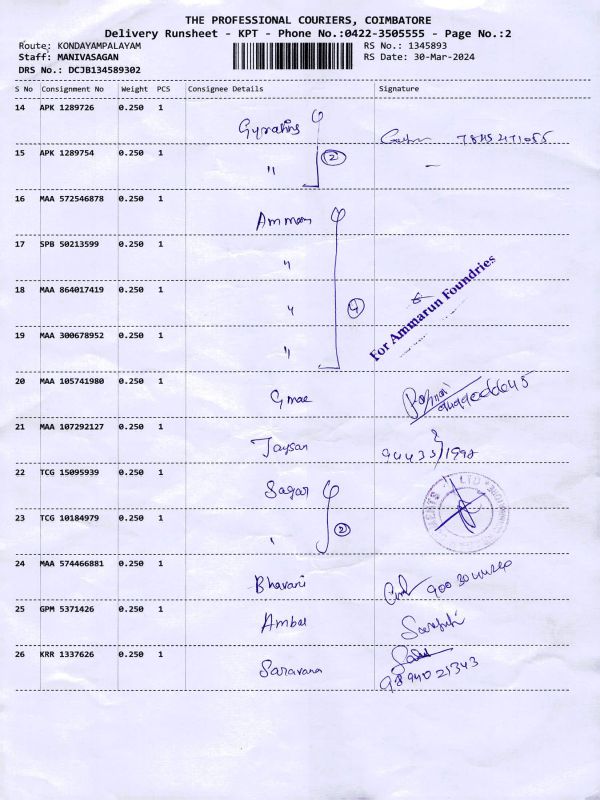 THE PROFESSIONAL COURIERS, COIMBATORE
Delivery Runsheet - KPT - Phone No.:0422-3505555 - Page No.:2
Route: KONDAYAMPALAYAM RS No.: 1345893
Staff: MANIVASAGAN RS Date: 30-Mar-2024
DRS No.: DCJB134589302
S No Consignment No Weight PCS Consignee Details Signature
14 APK 1289726 0.250 1
15 APK 1289754 0.250 1 " 2 -
16 MAA 572546878 0.250 1 Amman
17 SPB 50213599 0.250 1 "
18 MAA 864017419 0.250 1 " 4 For Ammarun Foundries
19 MAA 300678952 0.250 1 "
20 MAA 105741980 0.250 1 Gmae
21 MAA 107292127 0.250 1 Jaysan
22 TCG 15095939 0.250 1 Sagar LTD
23 TCG 10184979 0.250 1 " 2
24 MAA 574466881 0.250 1 Bhavani
25 GPM 5371426 0.250 1 Ambal
26 KRR 1337626 0.250 1 Saravana 9894021343